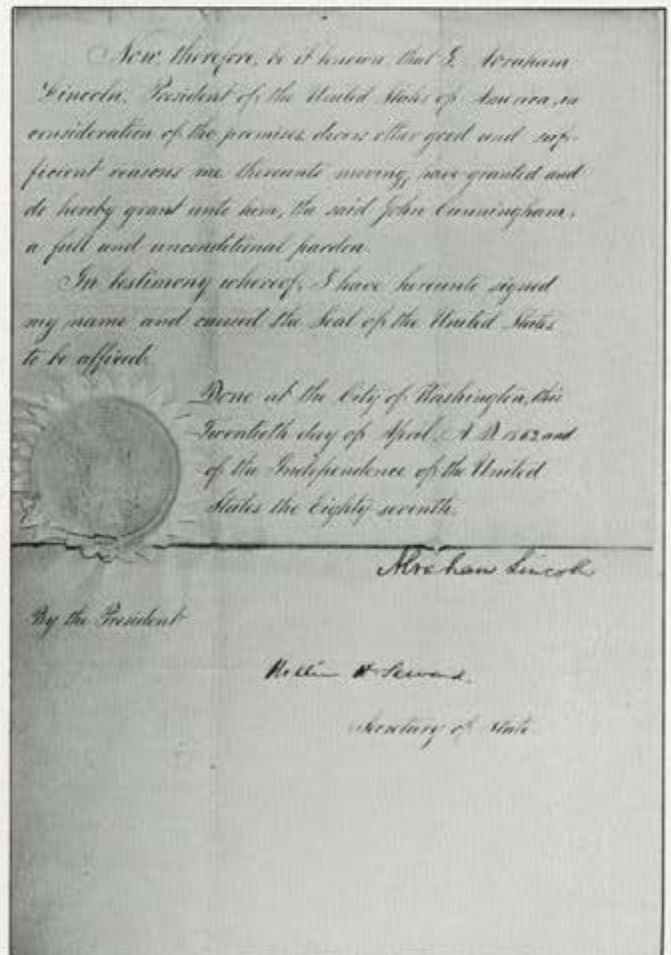 Now, therefore, be it known, that I, Abraham
Lincoln, President of the United States of America, in
consideration of the premises, divers other good and suf-
ficient reasons me thereunto moving, have granted and
do hereby grant unto him, the said John Cunningham,
a full and unconditional pardon.
In testimony whereof, I have hereunto signed
my name and caused the Seal of the United States
to be affixed.
Done at the City of Washington, this
Twentieth day of April, A.D. 1863 and
of the Independence of the United
States the Eighty-seventh.
Abraham Lincoln
By the President
William H. Seward
Secretary of State